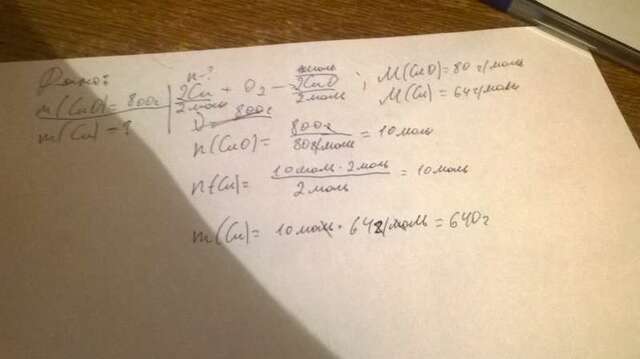 Дано:
m(CuO) = 800г
m(Cu) = ?
n-?
2Cu + O2 — 2CuO ; M(CuO) = 80 г/моль
2 моль 2 моль M(Cu) = 64 г/моль
800г
n(CuO) = 800г / 80г/моль = 10 моль
n(Cu) = 10 моль · 2 моль / 2 моль = 10 моль
m(Cu) = 10 моль · 64г/моль = 640г